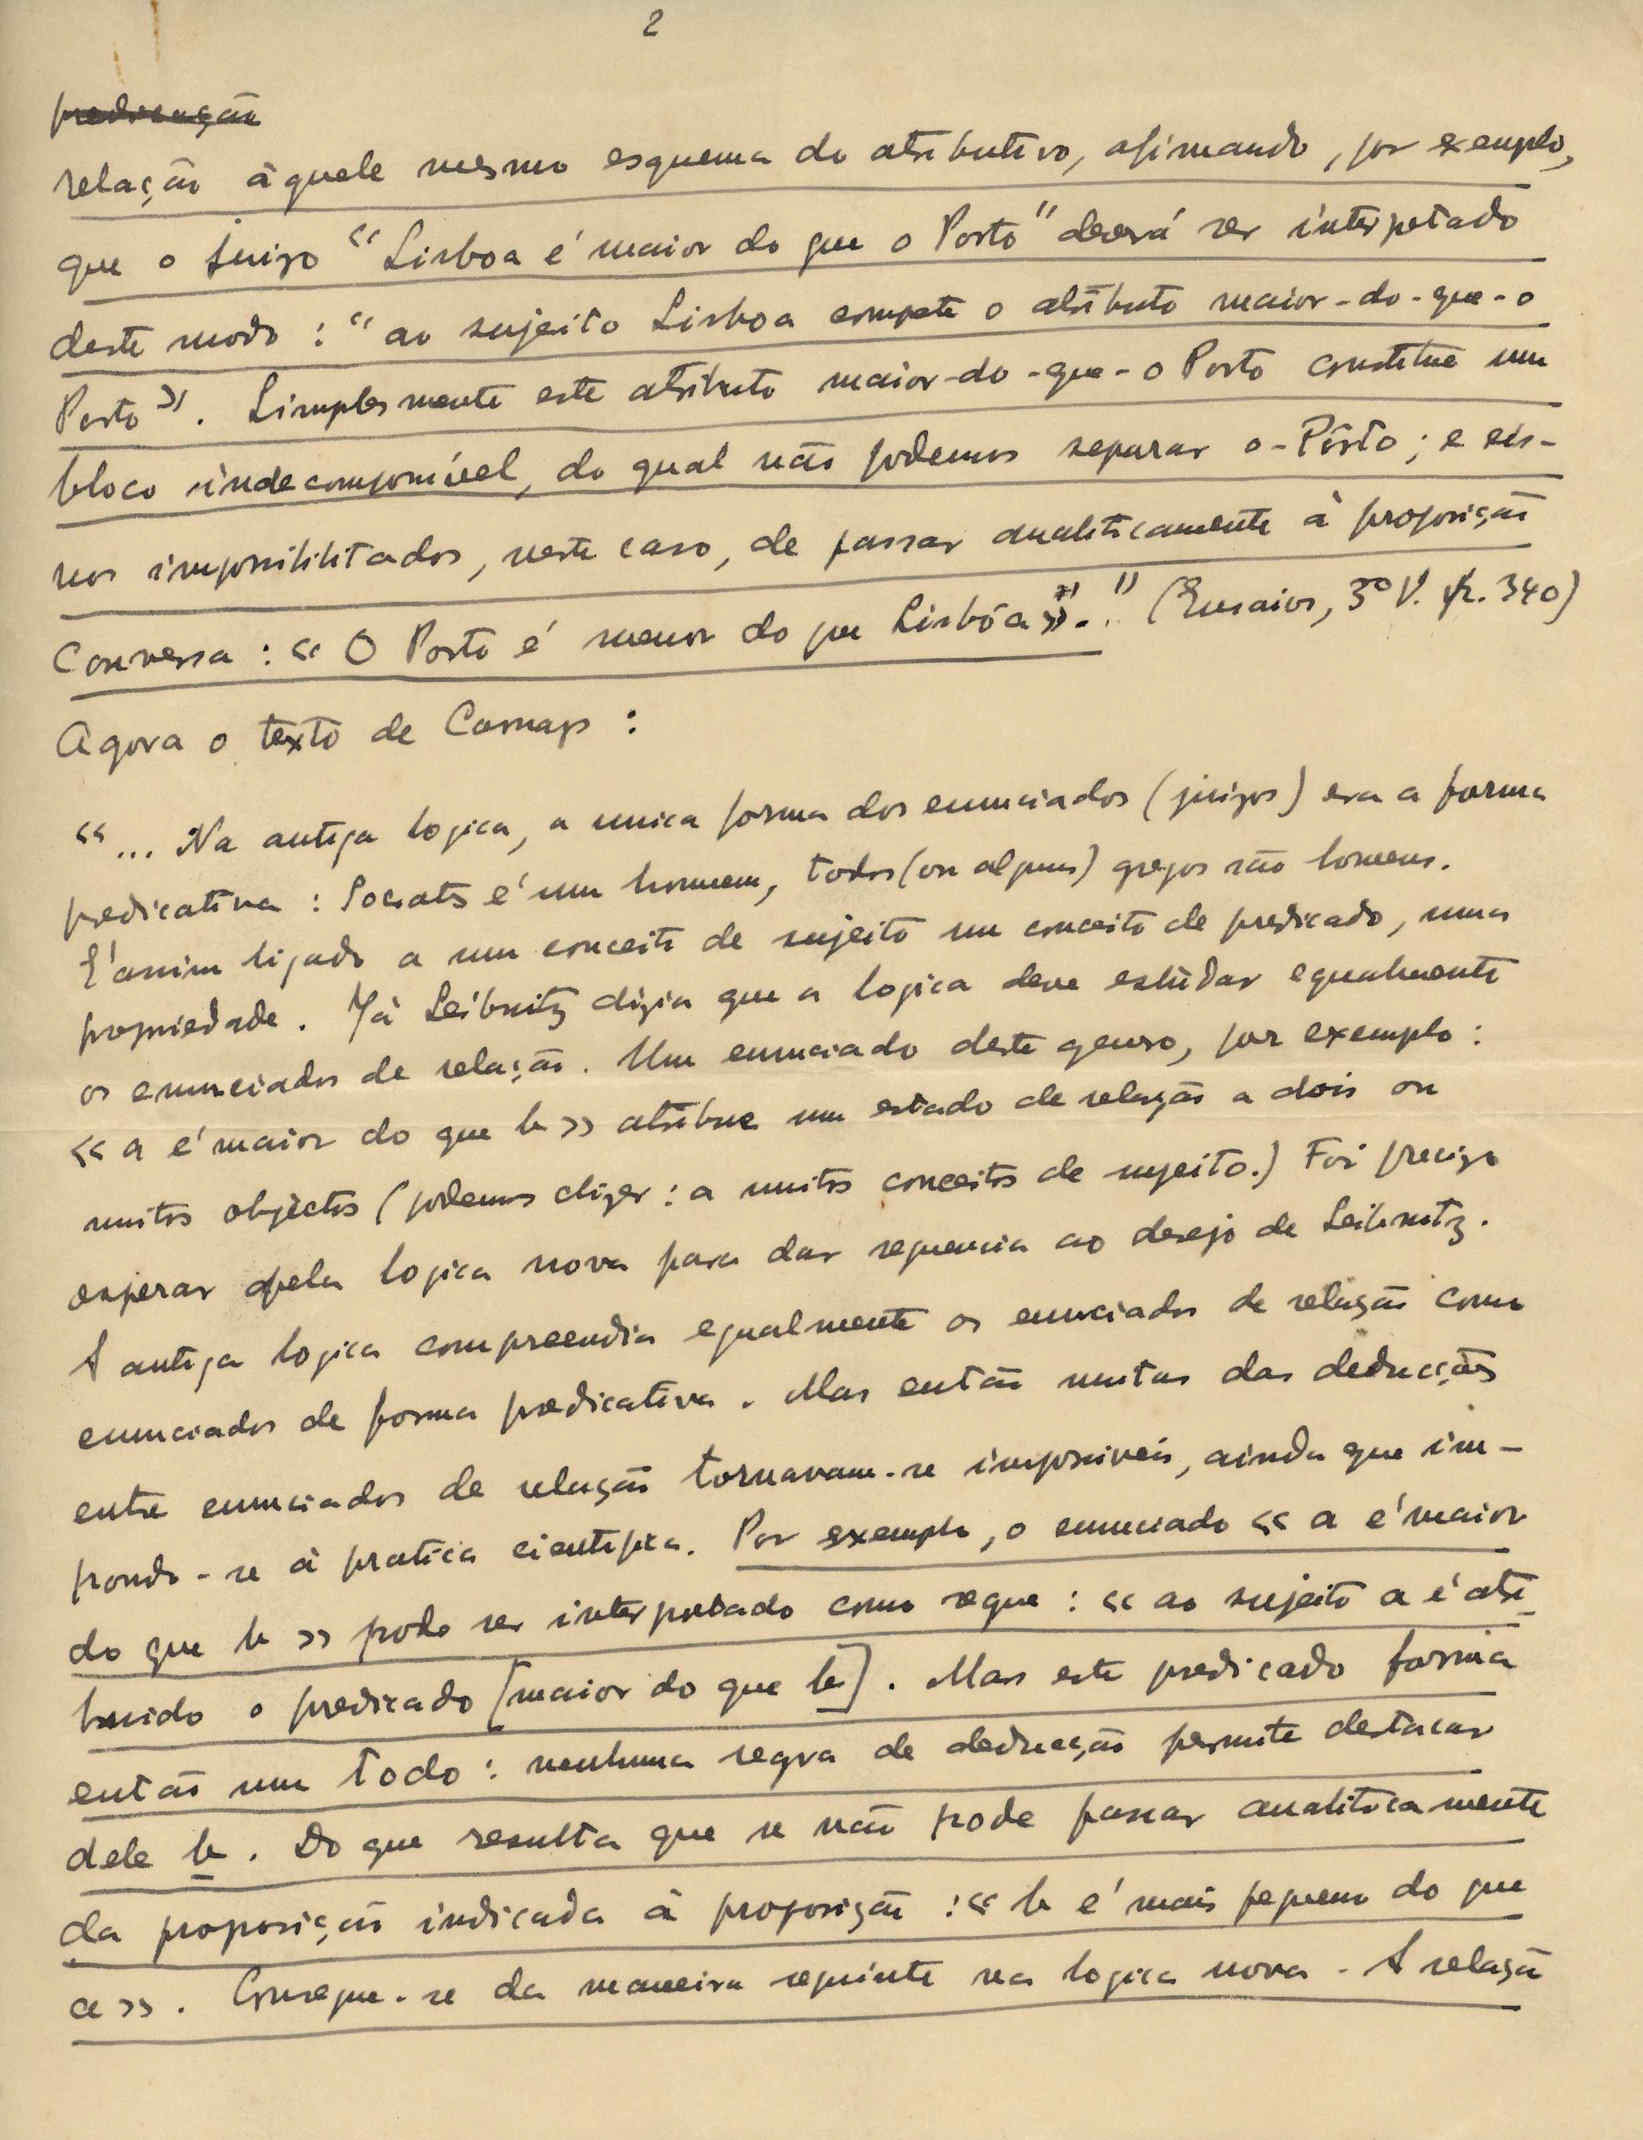 2
predicação
relação àquele mesmo esquema do atributivo, afirmando, por exemplo,
que o juizo "Lisboa é maior do que o Porto" deverá ser interpretado
deste modo: "ao sujeito Lisboa compete o atributo maior-do-que-o
Porto». Simplesmente este atributo maior-do-que-o Porto constitue um
bloco indecomponível, do qual não podemos separar o-Pôrto; e eis-
nos impossibilitados, neste caso, de passar analiticamente à proposição
conversa: « O Porto é menor do que Lisbôa»." (Ensaios, 3º V. p. 340)
Agora o texto de Carnap:
"... Na antiga logica, a unica forma dos enunciados (juizos) era a forma
predicativa: Socrates é um homem, todos (ou alguns) gregos são homens.
E' assim ligado a um conceito de sujeito um conceito de predicado, uma
propriedade. Já Leibnitz dizia que a logica deve estudar egualmente
os enunciados de relação. Um enunciado deste genero, por exemplo:
« a é maior do que b » atribue um estado de relação a dois ou
muitos objectos (podemos dizer: a muitos conceitos de sujeito.) Foi preciso
esperar pela logica nova para dar sequencia ao desejo de Leibnitz.
A antiga logica compreendia egualmente os enunciados de relação como
enunciados de forma predicativa. Mas então muitas das deducções
entre enunciados de relação tornavam-se impossiveis, ainda que im-
pondo-se à pratica cientifica. Por exemplo, o enunciado « a é maior
do que b » pode ser interpretado como segue: « ao sujeito a é atri
buido o predicado [maior do que b]. Mas este predicado forma
então um todo: nenhuma regra de deducção permite destacar
dele b. Do que resulta que se não pode passar analiticamente
da proposição indicada à proposição: « b é mais pequeno do que
a ». Consegue-se da maneira seguinte na logica nova - A relação